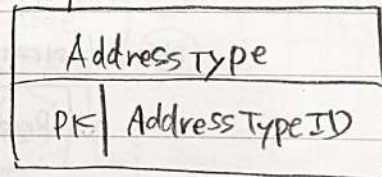 AddressType
PK AddressTypeID